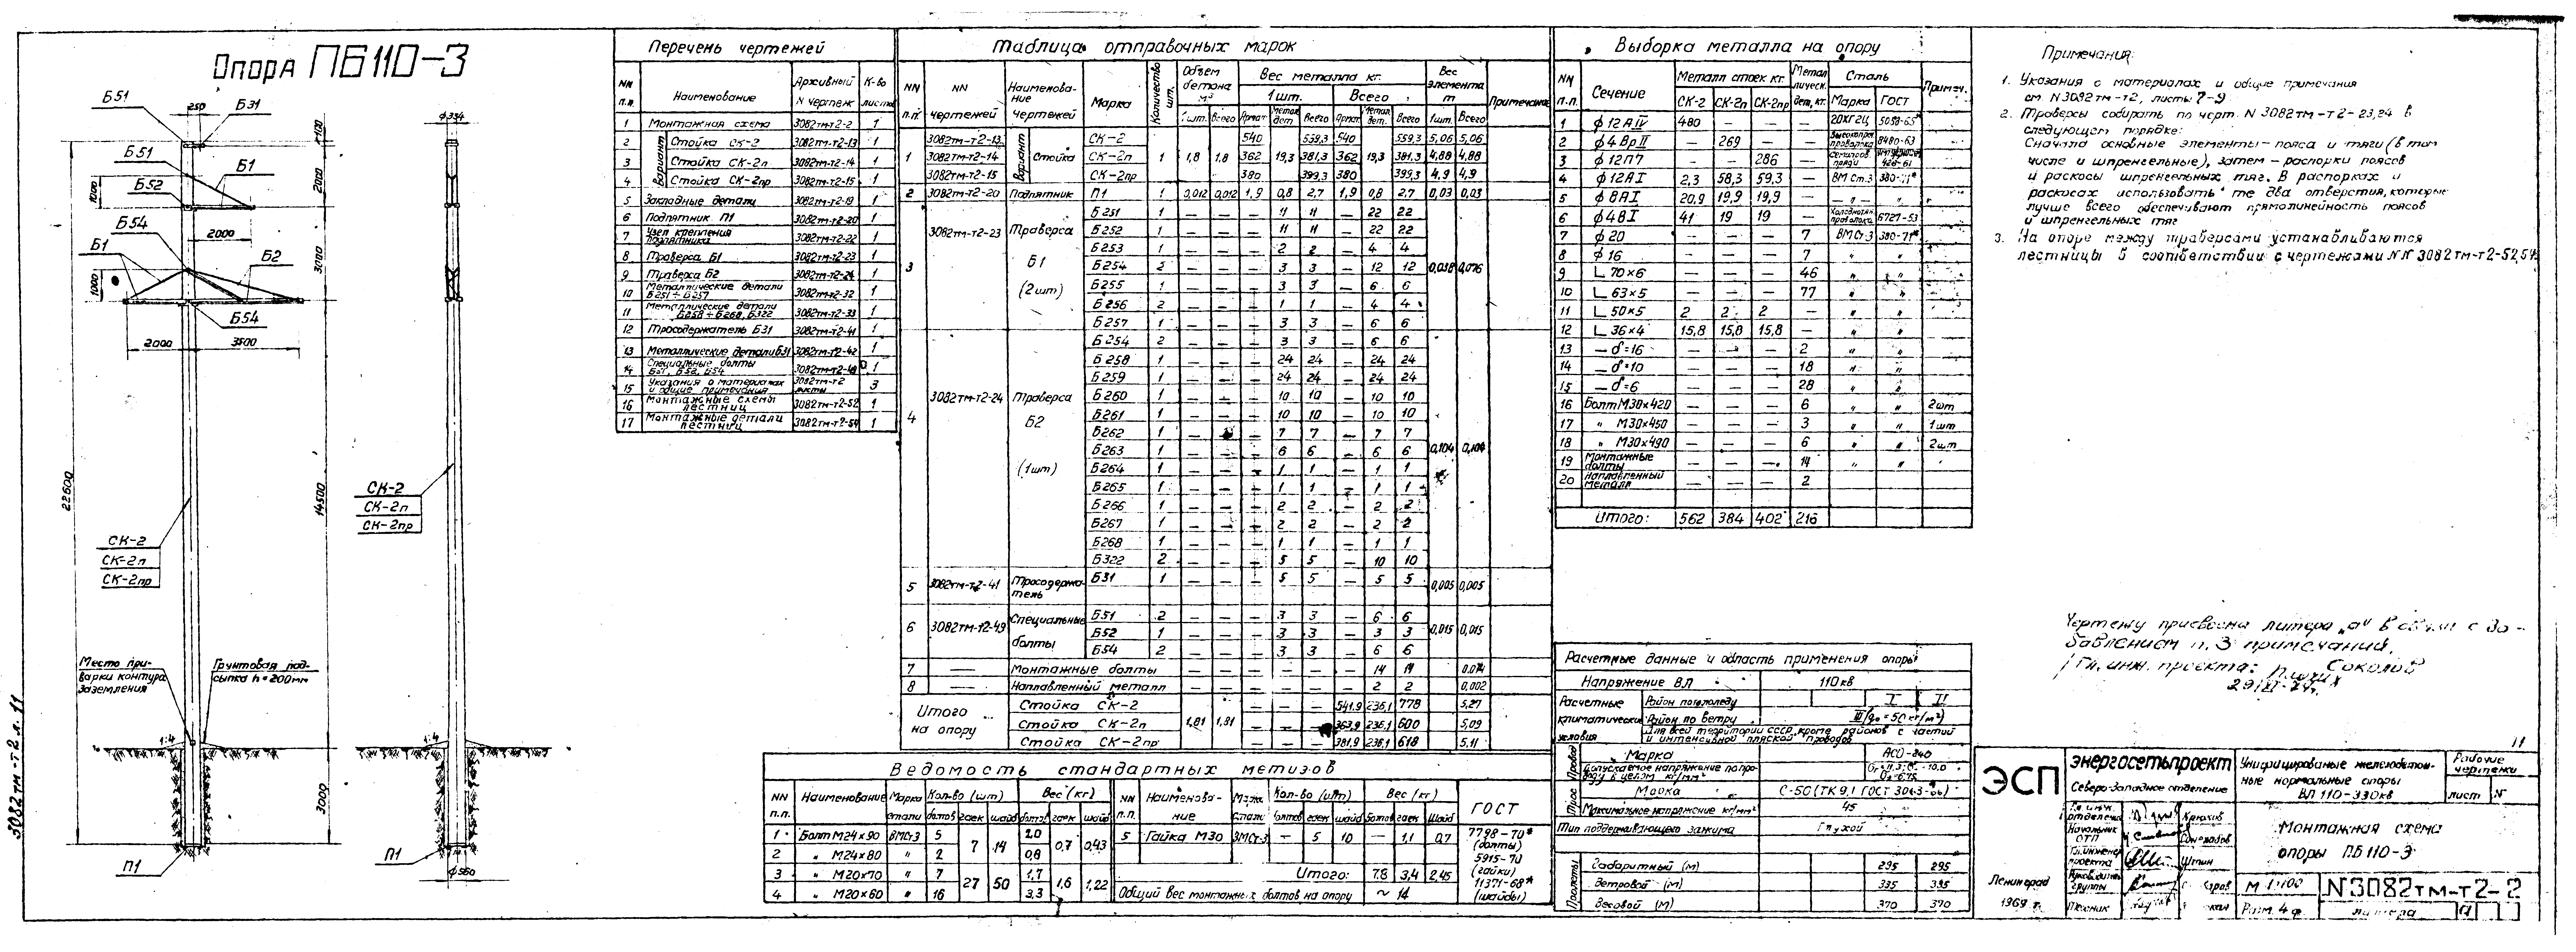 Опора ПБ110-3
Б51
250
Б31
Б51
Б1
Б52
1000
2000
Б54
Б1
Б2
1000
Б54
2000 3500
22600
СК-2
СК-2п
СК-2пр
Место при-
варки контура
заземления
Грунтовая под-
сыпка h=200мм
1:4
П1
2000
3000
14500
3000
ф334
СК-2
СК-2п
СК-2пр
1:4
П1
ф560
3082тм-т2 л. 11
Перечень чертежей
NN п.п. Наименование Архивный N чертеж К-во листов
1 Монтажная схема 3082тм-т2-2 1
Вариант
2 Стойка СК-2 3082тм-т2-13 1
3 Стойка СК-2п 3082тм-т2-14 1
4 Стойка СК-2пр 3082тм-т2-15 1
5 Закладные детали 3082тм-т2-19 1
6 Подпятник П1 3082тм-т2-20 1
7 Узел крепления подпятника 3082тм-т2-22 1
8 Траверса Б1 3082тм-т2-23 1
9 Траверса Б2 3082тм-т2-24 1
10 Металлические детали Б251÷Б257 3082тм-т2-32 1
11 Металлические детали Б258÷Б268, Б322 3082тм-т2-33 1
12 Тросодержатель Б31 3082тм-т2-41 1
13 Металлические детали Б31 3082тм-т2-42 1
14 Специальные болты Б51, Б52, Б54 3082тм-т2-49 1
15 Указания о материалах и общие примечания 3082тм-т2 листы 3
16 Монтажные схемы лестниц 3082тм-т2-52 1
17 Монтажные детали лестниц 3082тм-т2-54 1
Таблица отправочных марок
NN п.п. NN чертежей Наименование чертежей Марка Количество шт. Объем бетона м³ Вес металла кг. Вес элемента т Примечание
1шт. Всего
1шт. Всего Армат. Метал. дет. Всего Армат. Метал. дет. Всего 1шт. Всего
1 Вариант Стойка
3082тм-т2-13 СК-2 540 559,3 540 559,3 5,06 5,06
3082тм-т2-14 СК-2п 1 1,8 1,8 362 19,3 381,3 362 19,3 381,3 4,88 4,88
3082тм-т2-15 СК-2пр 380 399,3 380 399,3 4,9 4,9
2 3082тм-т2-20 Подпятник П1 1 0,012 0,012 1,9 0,8 2,7 1,9 0,8 2,7 0,03 0,03
3 3082тм-т2-23 Траверса Б1 (2шт) 0,038 0,076
Б251 1 — — — 11 11 — 22 22
Б252 1 — — — 11 11 — 22 22
Б253 1 — — — 2 2 — 4 4
Б254 2 — — — 3 3 — 12 12
Б255 1 — — — 3 3 — 6 6
Б256 2 — — — 1 1 — 4 4
Б257 1 — — — 3 3 — 6 6
4 3082тм-т2-24 Траверса Б2 (1шт) 0,104 0,104
Б254 2 — — — 3 3 — 6 6
Б258 1 — — — 24 24 — 24 24
Б259 1 — — — 24 24 — 24 24
Б260 1 — — — 10 10 — 10 10
Б261 1 — — — 10 10 — 10 10
Б262 1 — — — 7 7 — 7 7
Б263 1 — — — 6 6 — 6 6
Б264 1 — — — 1 1 — 1 1
Б265 1 — — — 1 1 — 1 1
Б266 1 — — — 2 2 — 2 2
Б267 1 — — — 2 2 — 2 2
Б268 1 — — — 1 1 — 1 1
Б322 2 — — — 5 5 — 10 10
5 3082тм-т2-41 Тросодержа-тель Б31 1 — — — 5 5 — 5 5 0,005 0,005
6 3082тм-т2-49 Специальные болты 0,015 0,015
Б51 2 — — — 3 3 — 6 6
Б52 1 — — — 3 3 — 3 3
Б54 2 — — — 3 3 — 6 6
7 — Монтажные болты — — — — — — 14 14 0.014
8 — Наплавленный металл — — — — — — 2 2 0,002
Итого на опору
Стойка СК-2 — — — 541,9 236,1 778 5,27
Стойка СК-2п 1,81 1,81 — — — 363,9 236,1 600 5,09
Стойка СК-2пр — — — 381,9 236,1 618 5.11
Ведомость стандартных метизов
NN п.п. Наименование Марка стали Кол-во (шт) Вес (кг) NN п.п. Наименова-ние Марк стали Кол-во (шт) Вес (кг) ГОСТ
болтов гаек шайб болтов гаек шайб болтов гаек шайб болтов гаек шайб
1 Болт М24×90 ВМСт3 5 7 14 2,0 0,7 0,43 5 Гайка М30 ВМСт-3 — 5 10 — 1,1 0,7 7798-70* (болты)
2 „ М24×80 „ 2 0,8 5915-70 (гайки)
3 „ М20×70 „ 7 27 50 1,7 1,6 1,22 Итого: 7,8 3,4 2,45
4 „ М20×60 „ 16 3,3 Общий вес монтажных болтов на опору ~ 14 11371-68* (шайбы)
Выборка металла на опору
NN п.п. Сечение Металл стоек кг. Метал лическ. дет, кг. Сталь Примеч.
СК-2 СК-2п СК-2пр Марка ГОСТ
1 ф12АIV 480 — — — 20ХГ2Ц 5058-65*
2 ф4ВрII — 269 — — Высокопроч проволока 8480-63
3 ф12П7 — — 286 —
4 ф12АI 2,3 58,3 59,3 — ВМ Ст.3 380-71*
5 ф8АI 20,9 19,9 19,9 — — „ —
6 ф4ВI 41 19 19 — проволока 6727-53
7 ф20 — — — 7 ВМСт-3 380-71*
8 ф16 — — — 7 „ „
9 L 70×6 — — — 46 „ „
10 L 63×5 — — — 77 „ „
11 L 50×5 2 2 2 — „ „
12 L 36×4 15,8 15,8 15,8 — „ „
13 — δ=16 — — — 2 „ „
14 — δ=10 — — — 18 „ „
15 — δ=6 — — — 28 „ „
16 Болт М30×420 — — — 6 „ „ 2шт
17 „ М30×450 — — — 3 „ „ 1шт
18 „ М30×490 — — — 6 „ „ 2шт
19 Монтажные болты — — — 14 „ „
20 Наплавленный металл — — — 2
Итого: 562 384 402 216
Расчетные данные и область применения опоры
Напряжение ВЛ 110 кв
Расчетные климатические условия
Район по гололеду I II
Район по ветру III (q₀=50 кг/м²)
Для всей территории СССР, кроме районов с частой и интенсивной пляской проводов
Провод
Марка АСО-240
Допускаемое напряжение по про-воду в целом кг/мм²
Трос
Марка С-50 (ТК 9,1 ГОСТ 3063-66)
Максимальное напряжение кг/мм² 45
Тип поддерживающего зажима Глухой
Пролеты
Габаритный (м) 295 295
Ветровой (м) 335 395
Весовой (м) 370 370
Примечания:
1. Указания о материалах и общие примечания
см. N3082тм-т2, листы 7-9
2. Траверсы собирать по черт. N 3082тм-т2-23,24 в
следующем порядке:
Сначала основные элементы- пояса и тяги (в том
числе и шпренгельные), затем - распорки поясов
и раскосы шпренгельных тяг. В распорках и
раскосах использовать те два отверстия, которые
лучше всего обеспечивают прямолинейность поясов
и шпренгельных тяг
3. На опоре между траверсами устанавливаются
лестницы в соответствии с чертежами NN 3082тм-т2-52,54
Чертежу присвоена литера „а" в связи с до-
бавлением п. 3 примечаний.
Гл. инж. проекта: Соколов
11
ЭСП
Энергосетьпроект
Северо-Западное отделение
Унифицированные железобетон-
ные нормальные опоры
ВЛ 110-330кв
Рабочие
чертежи
лист N
Гл. инж. отделения Крюков
Начальник ОТП
Гл. инженер проекта Штин
Руководитель группы
Техник
Монтажная схема
опоры ПБ110-3
Ленинград
1969 г.
М 1:100
Разм. 4 ф.
N3082тм-т2-2
литера а